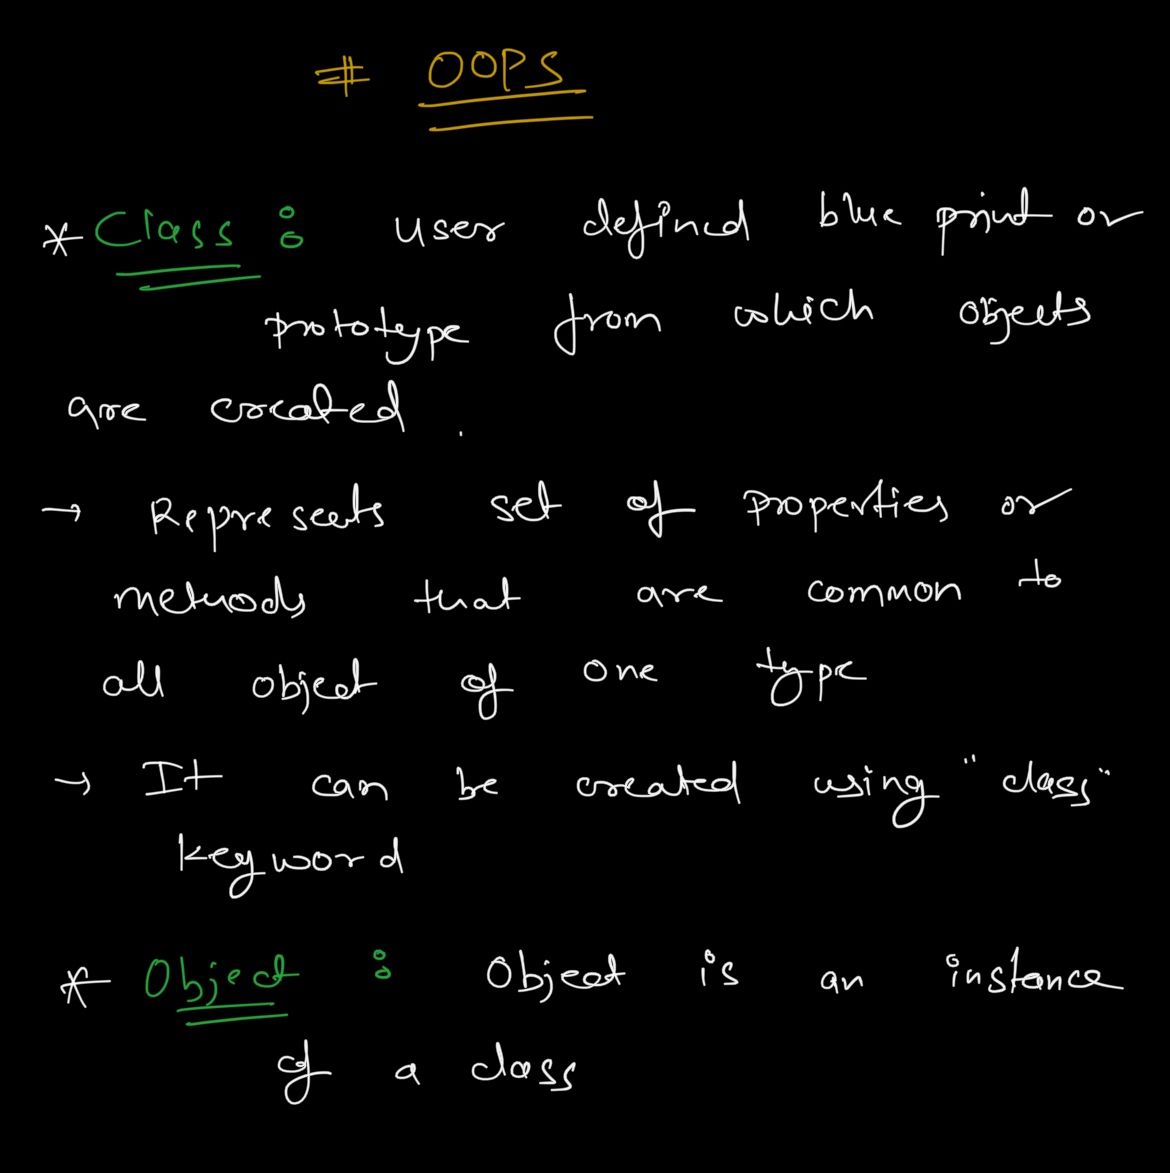 # OOPS
* Class : user defined blue print or
prototype from which objects
are created.
→ Represents set of properties or
methods that are common to
all object of one type
→ It can be created using "class"
keyword
* Object : Object is an instance
of a class